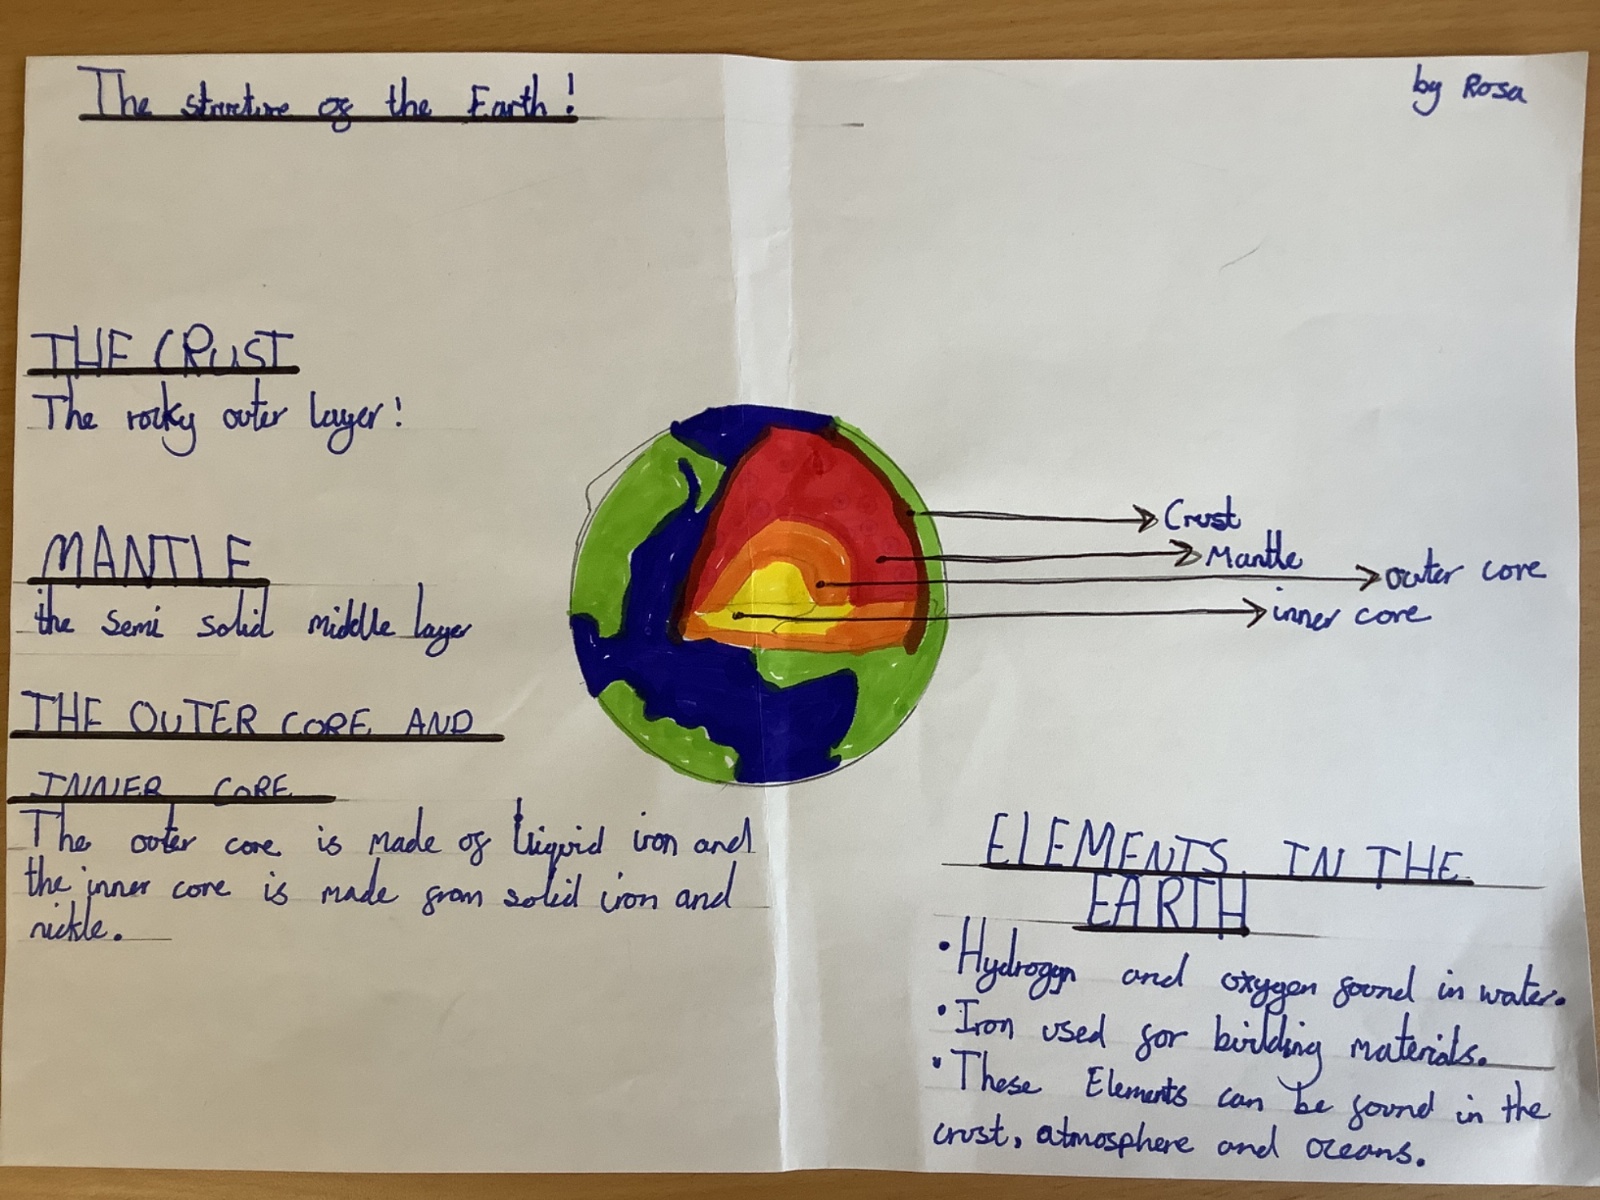 The structure of the Earth!
by Rosa
THE CRUST
The rocky outer layer!
MANTLE
the semi solid middle layer
THE OUTER CORE AND
INNER CORE
The outer core is made of liquid iron and
the inner core is made from solid iron and
nickle.
Crust
Mantle
outer core
inner core
ELEMENTS IN THE
EARTH
• Hydrogyn and oxygen found in water.
• Iron used for building materials.
• These Elements can be found in the
crust, atmosphere and oceans.